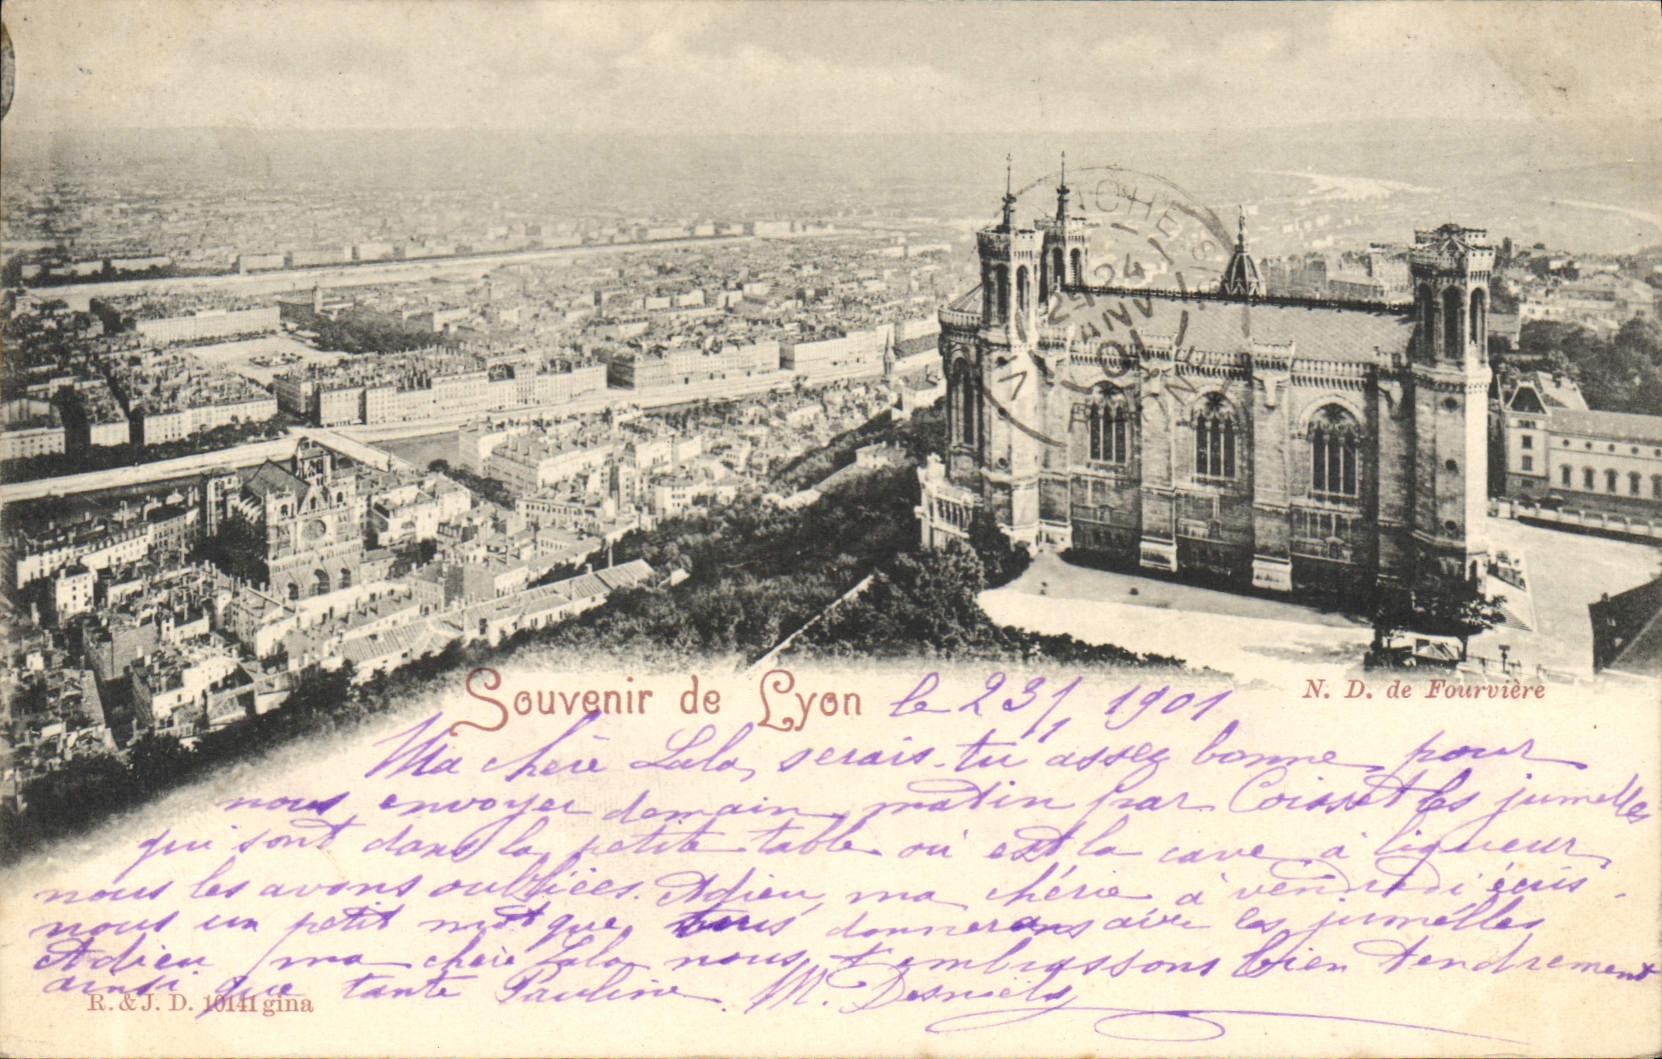 Souvenir de Lyon le 23/1 1901
N. D. de Fourvière
Ma chère Lala, serais-tu assez bonne pour
nous envoyer demain matin par Coisset les jumelles
qui sont dans la petite table où est la cave à liqueur,
nous les avons oubliées. Adieu, ma chérie à vendredi écris
nous un petit mot que nous donnerons avec les jumelles
Adieu ma chère Lala nous t'embrassons bien tendrement
ainsi que tante Pauline. M.
R. & J. D. 10141 gina
24 JANV 01
RHONE